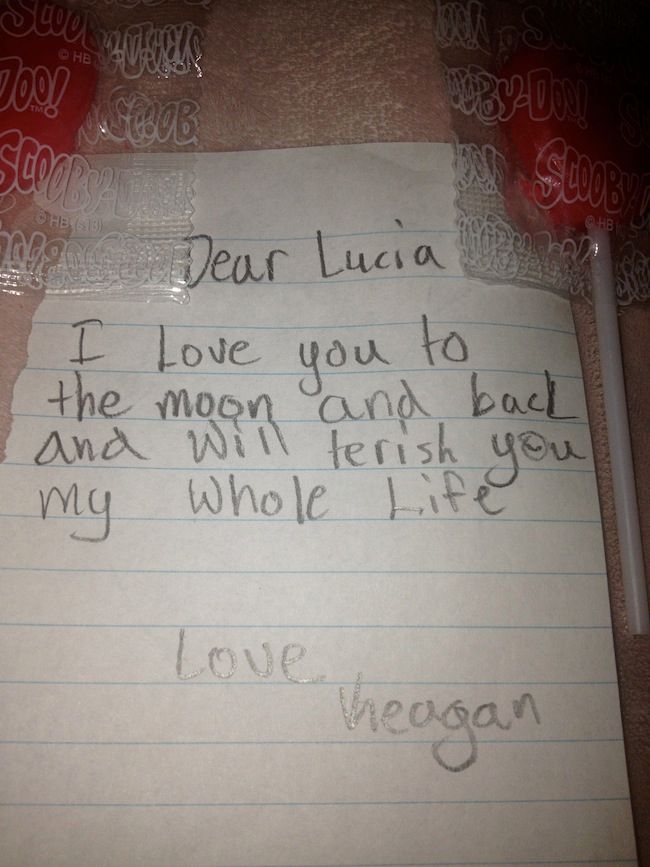 SCOOBY-DOO!
© HB
SCOOBY-DOO!
© HB (s13)
SCOOBY-DOO!
SCOOBY-D
© HB
Dear Lucia
I Love you to
the moon and back
and will terish you
my whole Life
Love
Keagan